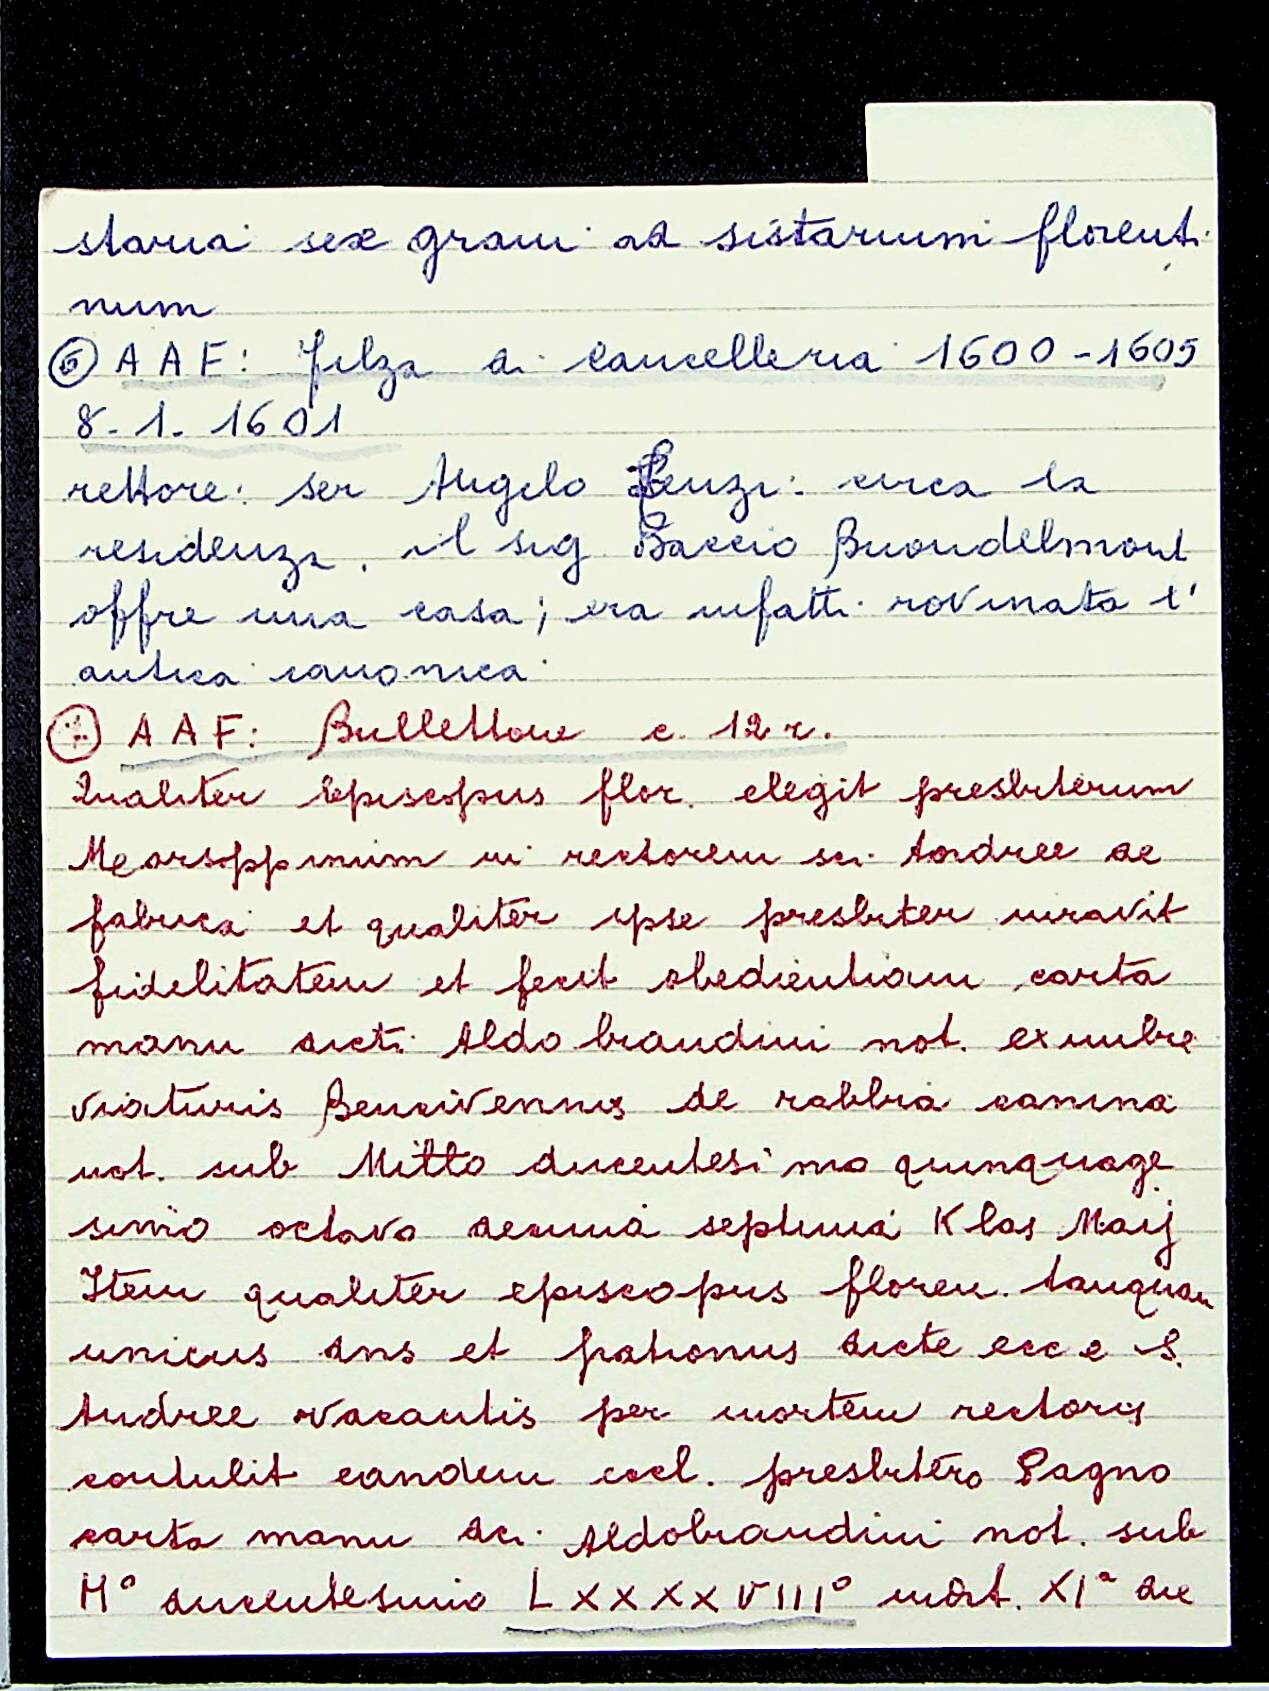 staria sex grani ad sistarium florenti
num
⑥ A A F: Filza di Cancelleria 1600-1605
8-1-1601
rettore: ser Angelo Renzi: circa la
residenza, il sig Baccio Buondelmont
offre una casa; era infatti rovinata l'
antica canonica
⑦ A A F: Bullettone c. 12 r.
Qualiter Episcopus flor. elegit presbiterum
in rectorem sci. Andree de
fabrica et qualiter ipse presbiter iuravit
fidelitatem et fecit obedientiam carta
manu dicti Aldobrandini not. ex imbre
viaturis Bencivennis de rabbia canina
not. sub Mitto ducentesimo quinquage
simo octavo decima septima Klas Maij
Item qualiter episcopus floren. tanquam
unicus dns et patronus dicte ecc e S.
Andree vacantis per mortem rectoris
contulit eandem eccl. presbitero Pagno
carta manu dci. Aldobrandini not. sub
M° ducentesimo LXXXXVIII° indit. XIª die